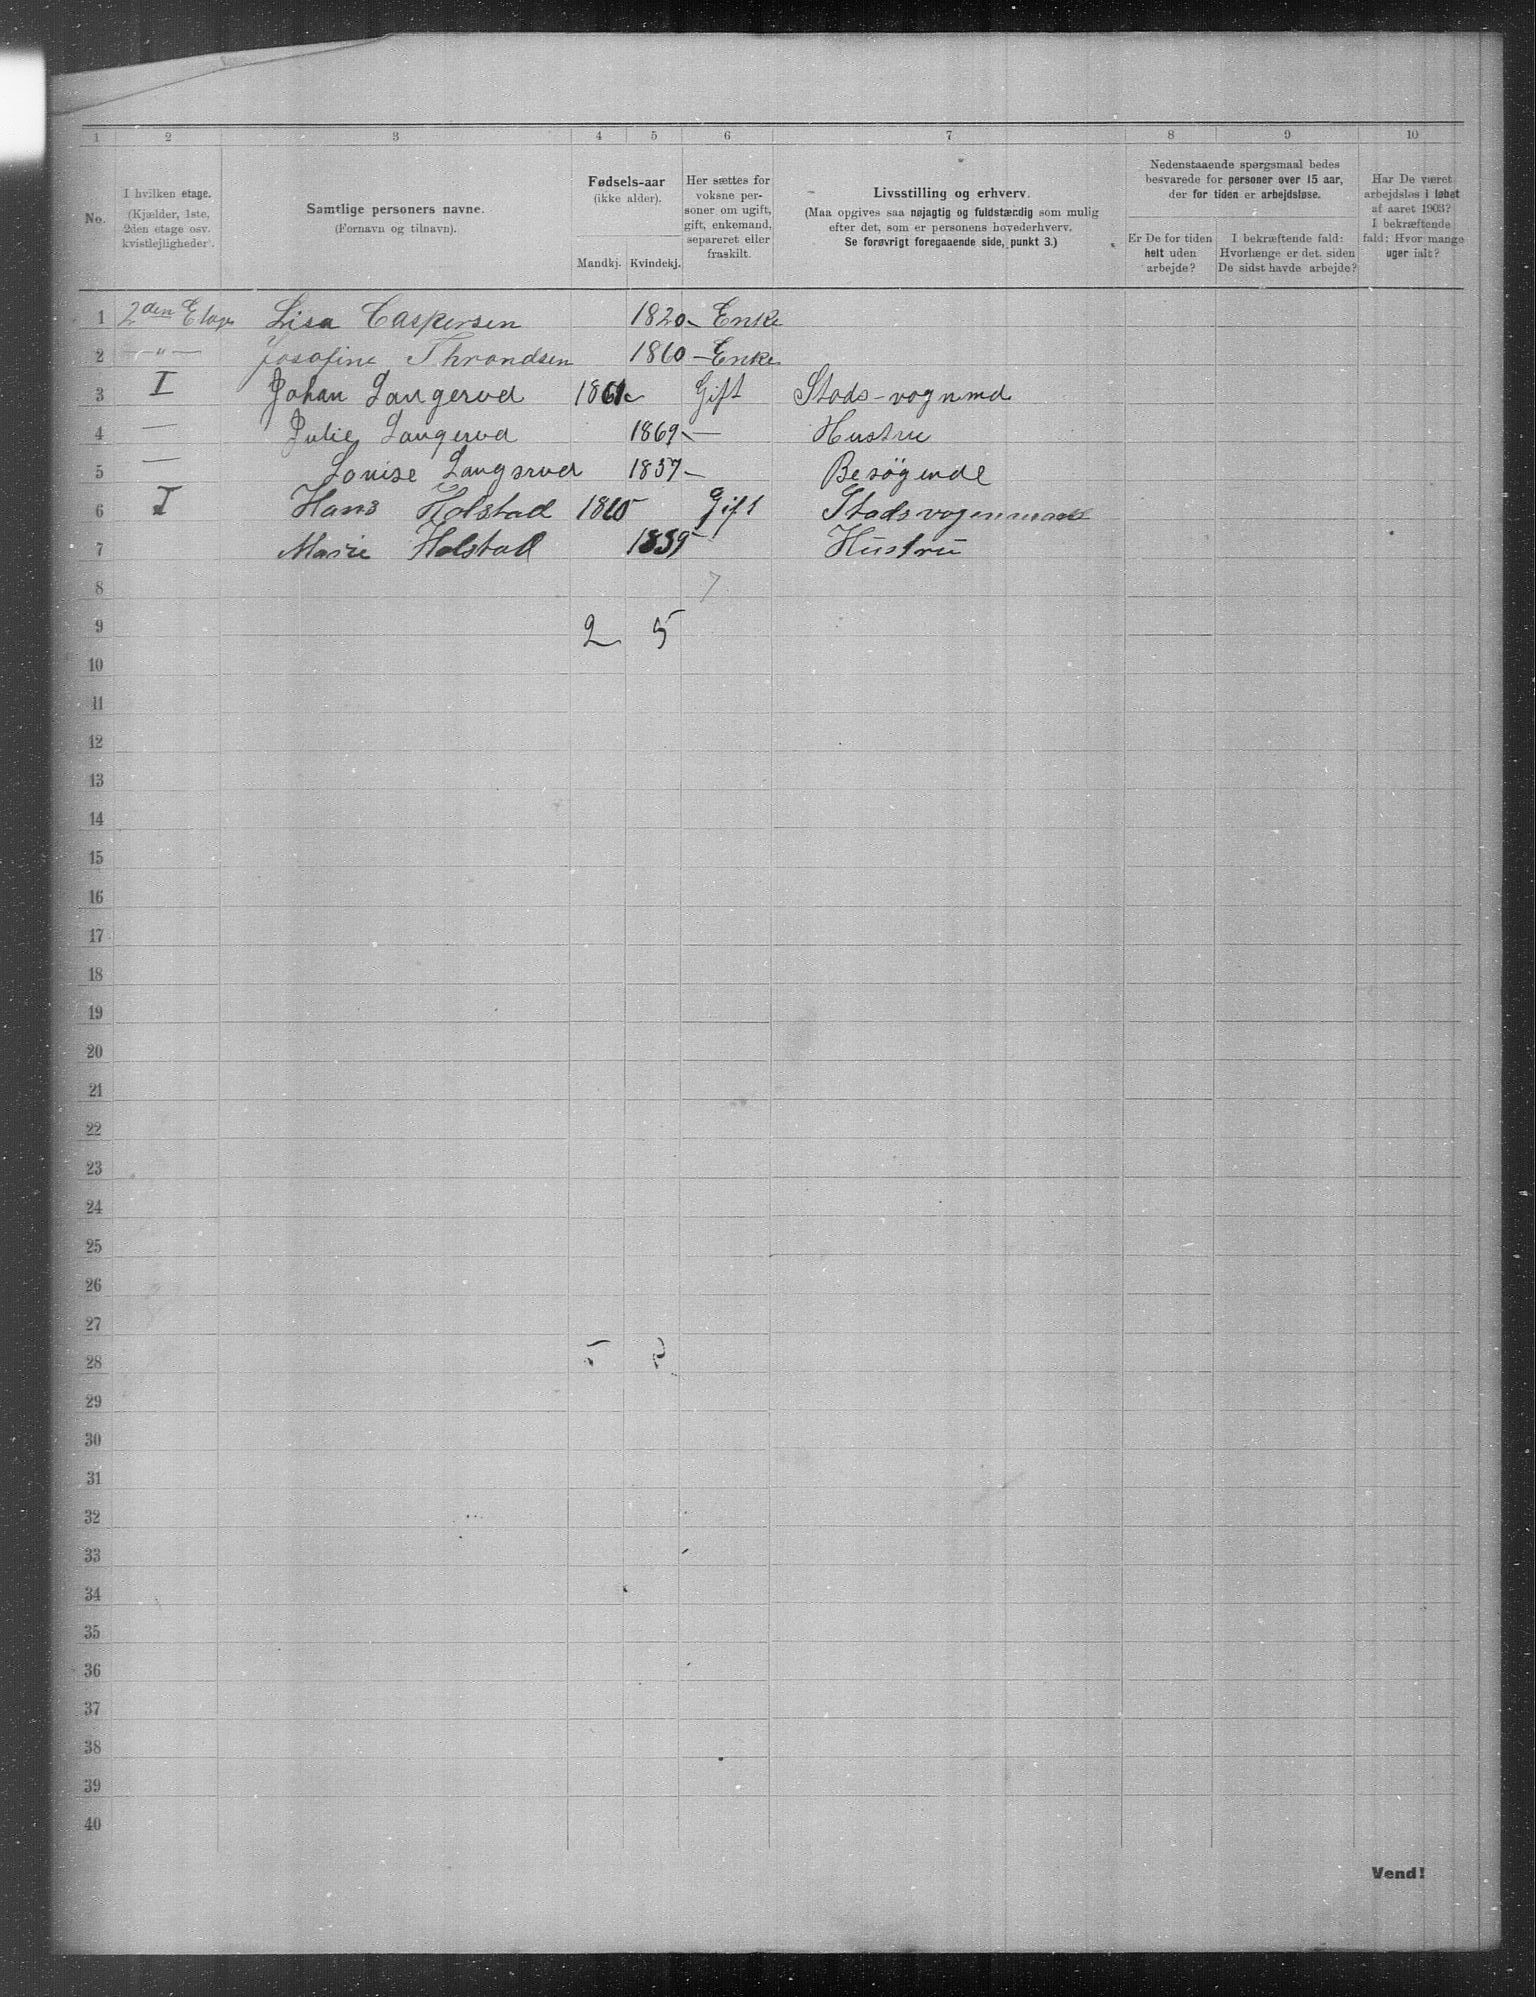 1 2 3 4 5 6 7 8 9 10
No.
I hvilken etage.
(Kjælder, 1ste,
2den etage osv.
kvistlejligheder).
Samtlige personers navne.
(Fornavn og tilnavn).
Fødsels-aar
(ikke alder).
Mandkj. Kvindekj.
Her sættes for
voksne per-
soner om ugift,
gift, enkemand,
separeret eller
fraskilt.
Livsstilling og erhverv.
(Maa opgives saa nøjagtig og fuldstændig som mulig
efter det, som er personens hovederhverv.
Se forøvrigt foregaaende side, punkt 3.)
Nedenstaaende spørgsmaal bedes
besvarede for personer over 15 aar,
der for tiden er arbejdsløse.
Er De for tiden
helt uden
arbejde?
I bekræftende fald:
Hvorlænge er det, siden
De sidst havde arbejde?
Har De været
arbejdsløs i løbet
af aaret 1903?
I bekræftende
fald: Hvor mange
uger ialt?
1 2den Etage Lisa Caspersen 1820 Enke
2 — „ — Josofine Throndsen 1860 Enke
3 I Johan Langerud 1861 Gift Stads-vognmd
4 — Julie Langerud 1869 — Hustru
5 — Louise Langsrud 1857 — Besøgende
6 I Hans Holstad 1860 Gift Stadsvogenmand
7 Marie Holstad 1859 " Hustru
8 7
9 2 5
10
11
12
13
14
15
16
17
18
19
20
21
22
23
24
25
26
27
28
29
30
31
32
33
34
35
36
37
38
39
40
Vend!